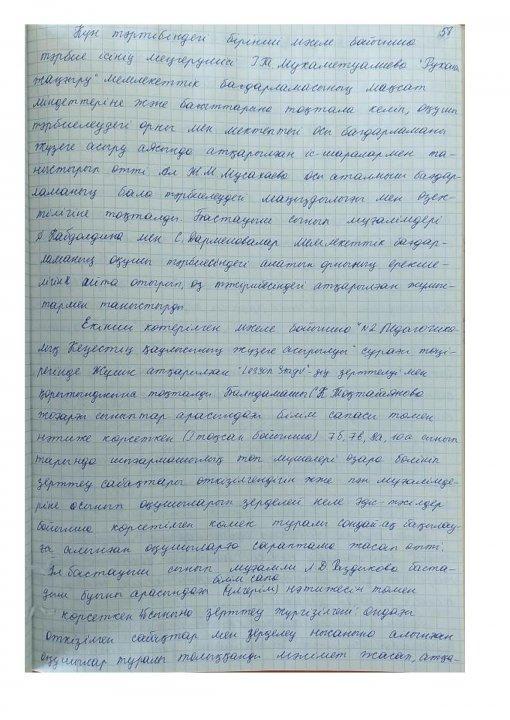 58
Күн тәртібіндегі бірінші мәселе бойынша
тәрбие ісінің меңгерушісі Г.Т Мухаметуалиева "Рухани
жаңғыру" мемлекеттік бағдарламасының мақсат
міндеттеріне және бағыттарына тоқтала келіп, оқушы
тәрбиелеудегі орны мен мектептегі осы бағдарламаны
жүзеге асыру аясында атқарылған іс-шаралармен та-
ныстырып өтті. Ал Ж.М Мусахаева осы аталмыш бағдар-
ламаның бала тәрбиелеудегі маңыздылығы мен өзек-
тілігіне тоқталды. Бастауыш сынып мұғалімдері
Кабдолдина мен С. Дарменовалар мемлекеттік бағдар-
ламаның оқушы тәрбиесіндегі алатын орнының ерекше-
лігін айта отырып, өз тәжірибесіндегі атқарылған жұмыс-
тармен таныстырды.
Екінші көтерілген мәселе бойынша "№2 Педагогика-
лық Кеңестің қаулысының жүзеге асырылуы" сұрағы төңі-
регінде Жұмыс атқарылған "Lesson Study" -дің зерттеуі мен
қорытындысына тоқталды. Баяндамашы С.К Тоқтабаянова
жоғарғы сыныптар арасындағы білім сапасы төмен
нәтиже көрсеткен (1 тоқсан бойынша) 7б, 7в, 8а, 10а сынып
тарында шығармашылық топ мүшелері өзара бөлініп
зерттеу сабақтары өткізілгендігін және пән мұғалімде-
ріне осы сынып оқушыларын зерделей келе әдіс-тәсілдер
бойынша көрсетілген көмек туралы сондай-ақ бақылау-
ға алынған оқушыларға сараптама жасап өтті.
Ал бастауыш сынып мұғалімі А.Д баста-
білім сапа
уыш буыны арасындағы (үлгерім) нәтижесін төмен
көрсеткен сыныпқа зерттеу жүргізілгені ондағы
өткізілген сабақтар мен зерделеу нысанына алынған
оқушылар туралы толыққанды мәлімет жасап, атқа-